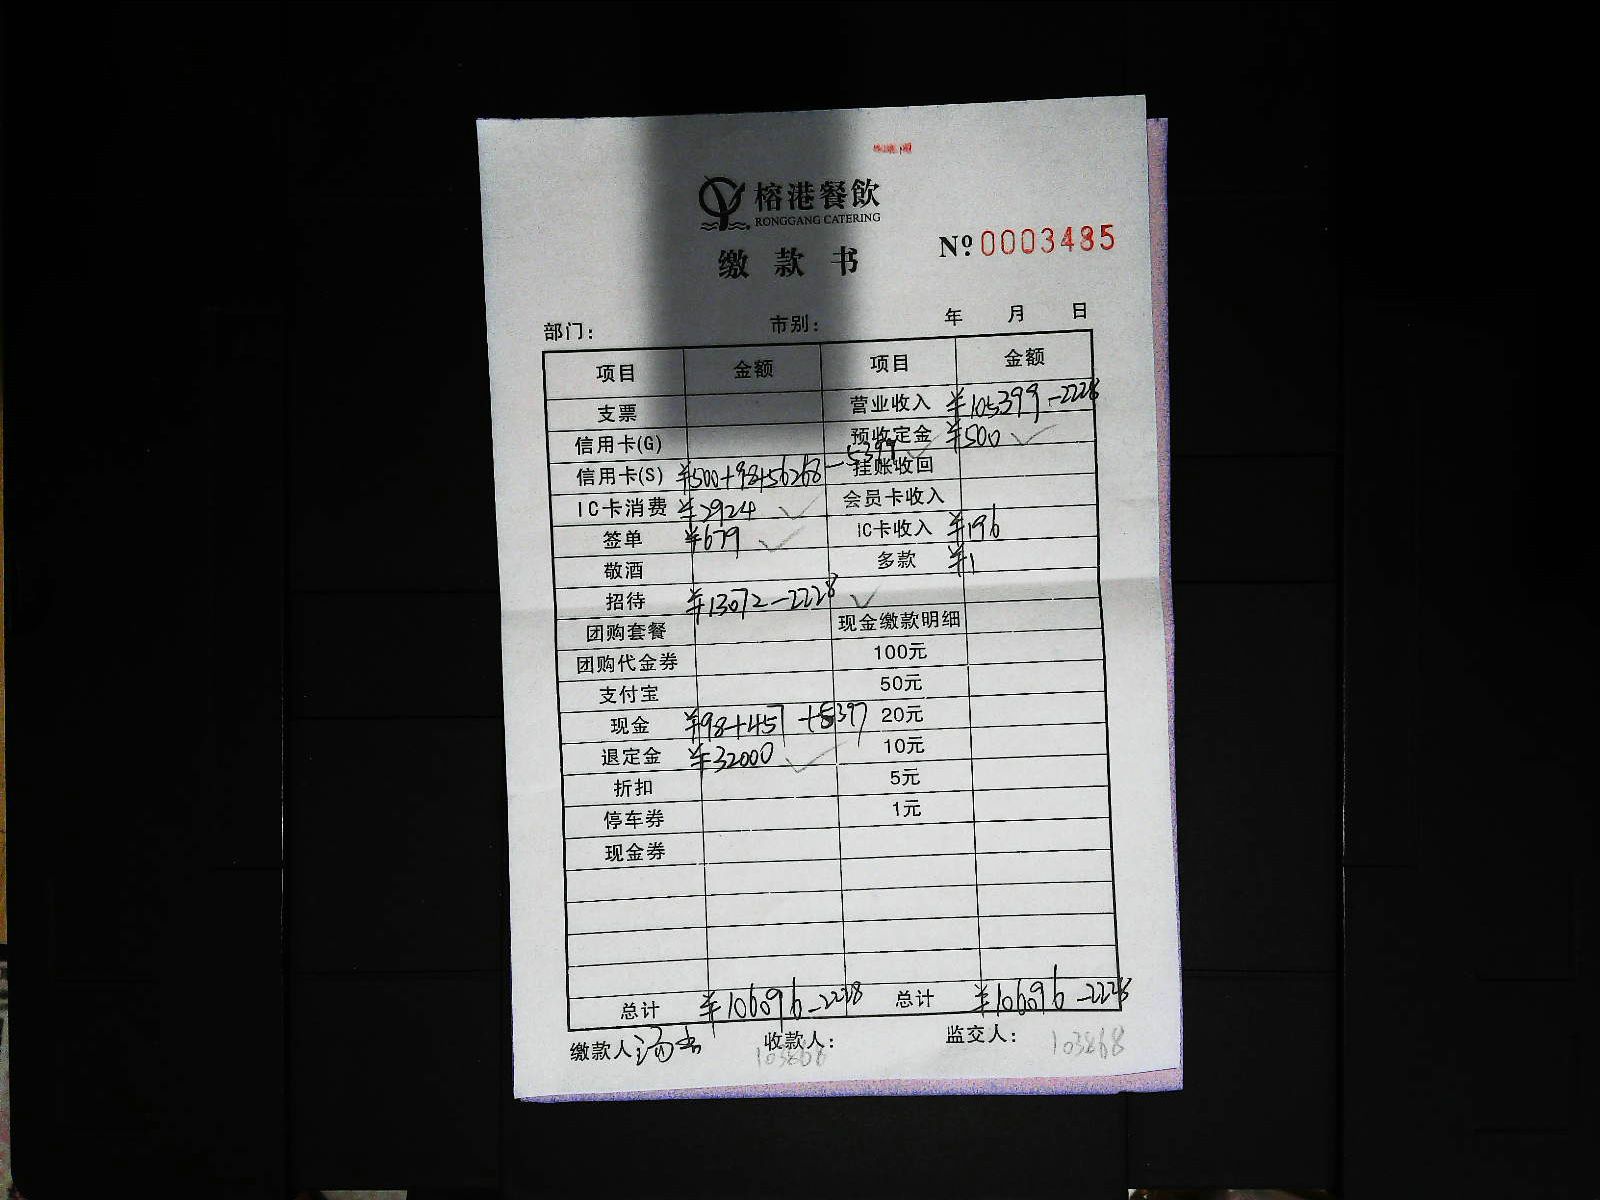 榕港餐飲
RONGGANG CATERING
缴款书
№ 0003485
部门: 市别: 年 月 日
项目 金额 项目 金额
支票 营业收入 ¥105399-2228
信用卡(G) 预收定金 ¥500
信用卡(S) ¥500+98+56268-5399 挂账收回
IC卡消费 ¥2924 会员卡收入
签单 ¥679 IC卡收入 ¥196
敬酒 多款 ¥1
招待 ¥13072-2228
团购套餐 现金缴款明细
团购代金券 100元
支付宝 50元
现金 ¥98+457+5397 20元
退定金 ¥32000 10元
折扣 5元
停车券 1元
现金券
总计 ¥106096-2228 总计 ¥106096-2228
缴款人: 收款人: 监交人:
103868 103868